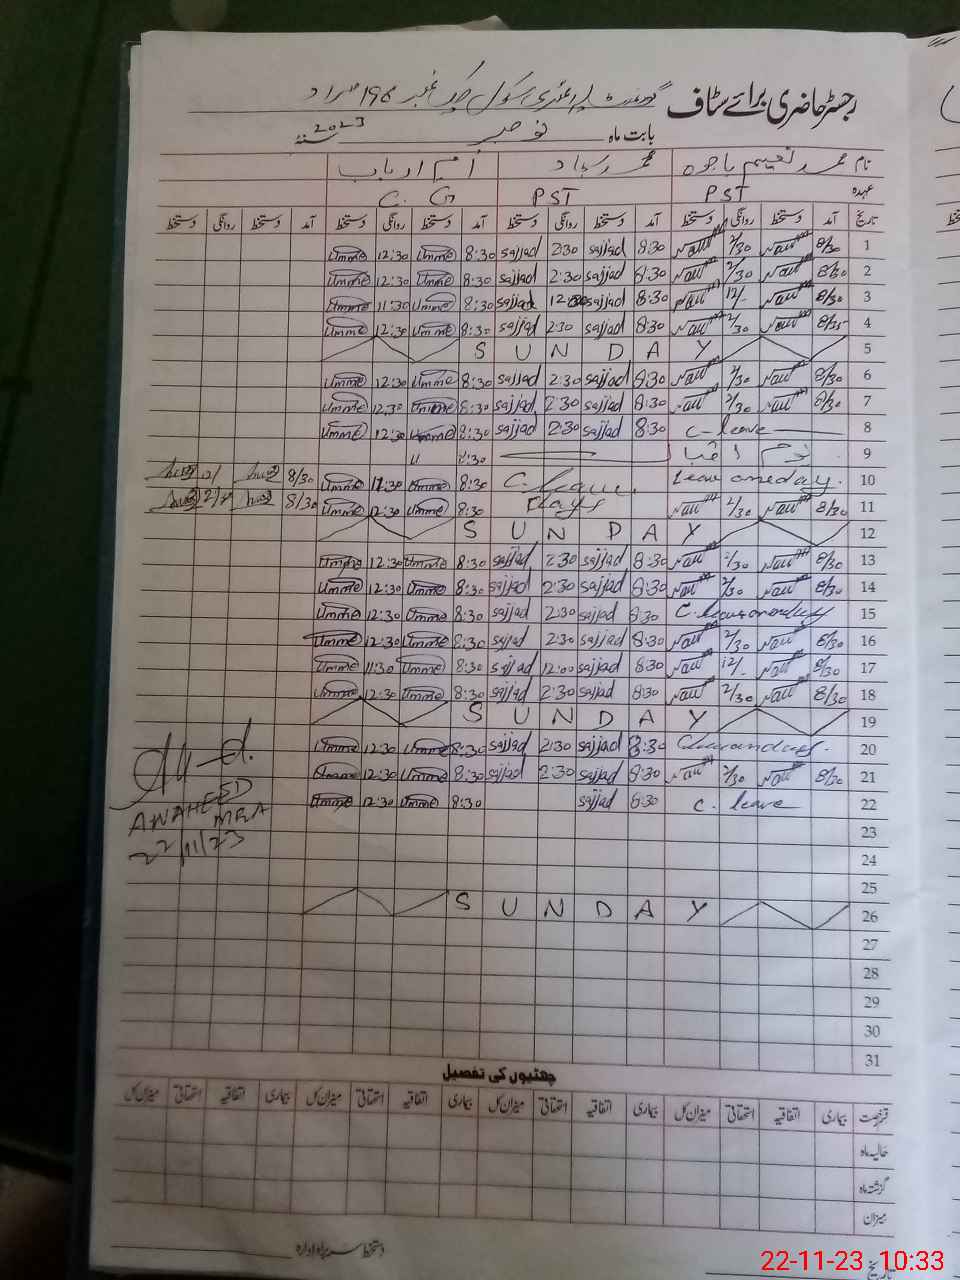 رجسٹر حاضری برائے سٹاف گورنمنٹ پرائمری سکول چک نمبر 196 مراد
بابت ماہ نومبر 2023 سنہ
نام محمد نعیم باجوہ محمد سجاد ام ارباب
عہدہ PST PST C. G
تاریخ آمد دستخط روانگی دستخط آمد دستخط روانگی دستخط آمد دستخط روانگی دستخط آمد دستخط روانگی دستخط
1 8/30 2/30 8:30 sajjad 2:30 sajjad 8:30 Umme 12:30 Umme
2 8/30 2/30 8:30 sajjad 2:30 sajjad 8:30 Umme 12:30 Umme
3 8/30 12/- 8:30 sajjad sajjad 8:30 Umme 11:30 Umme
4 8/35 2/30 8:30 sajjad 2:30 sajjad 8:30 Umme 12:30 Umme
5 S U N D A Y
6 8/30 2/30 8:30 sajjad 2:30 sajjad 8:30 Umme 12:30 Umme
7 8/30 2/30 8:30 sajjad 2:30 sajjad 8:30 Umme 12:30 Umme
8 c-leave 8:30 sajjad 2:30 sajjad 8:30 Umme 12:30 Umme
9 8:30
10 Leave oneday. C. leave 8:30 Umme Umme 8/30
11 8/30 2/30 8:30 Umme 12:30 Umme 8/30
12 S U N D A Y
13 8/30 2/30 8:30 sajjad 2:30 sajjad 8:30 Umme 12:30 Umme
14 8/30 2/30 8:30 sajjad 2:30 sajjad 8:30 Umme 12:30 Umme
15 C. leave oneday 8:30 sajjad 2:30 sajjad 8:30 Umme 12:30 Umme
16 8/30 2/30 8:30 sajjad 2:30 sajjad 8:30 Umme 12:30 Umme
17 8/30 12/- 8:30 sajjad 12:00 sajjad 8:30 Umme 11:30 Umme
18 8/30 2/30 8:30 sajjad 2:30 sajjad 8:30 Umme 12:30 Umme
19 S U N D A Y
20 8:30 sajjad 2:30 sajjad 8:30 Umme 12:30 Umme
21 8/30 2/30 8:30 sajjad 2:30 sajjad 8:30 Umme 12:30 Umme
22 c. leave 8:30 sajjad 8:30 Umme 12:30 Umme
AWAHEED
MEA
22/11/23
23
24
25
26 S U N D A Y
27
28
29
30
31
چھٹیوں کی تفصیل
قسم رخصت بیماری اتفاقیہ استحقاقی میزان کل بیماری اتفاقیہ استحقاقی میزان کل بیماری اتفاقیہ استحقاقی میزان کل بیماری اتفاقیہ استحقاقی میزان کل
حالیہ ماہ
گزشتہ ماہ
میزان
تاریخ دستخط سربراہ ادارہ
22-11-23 10:33